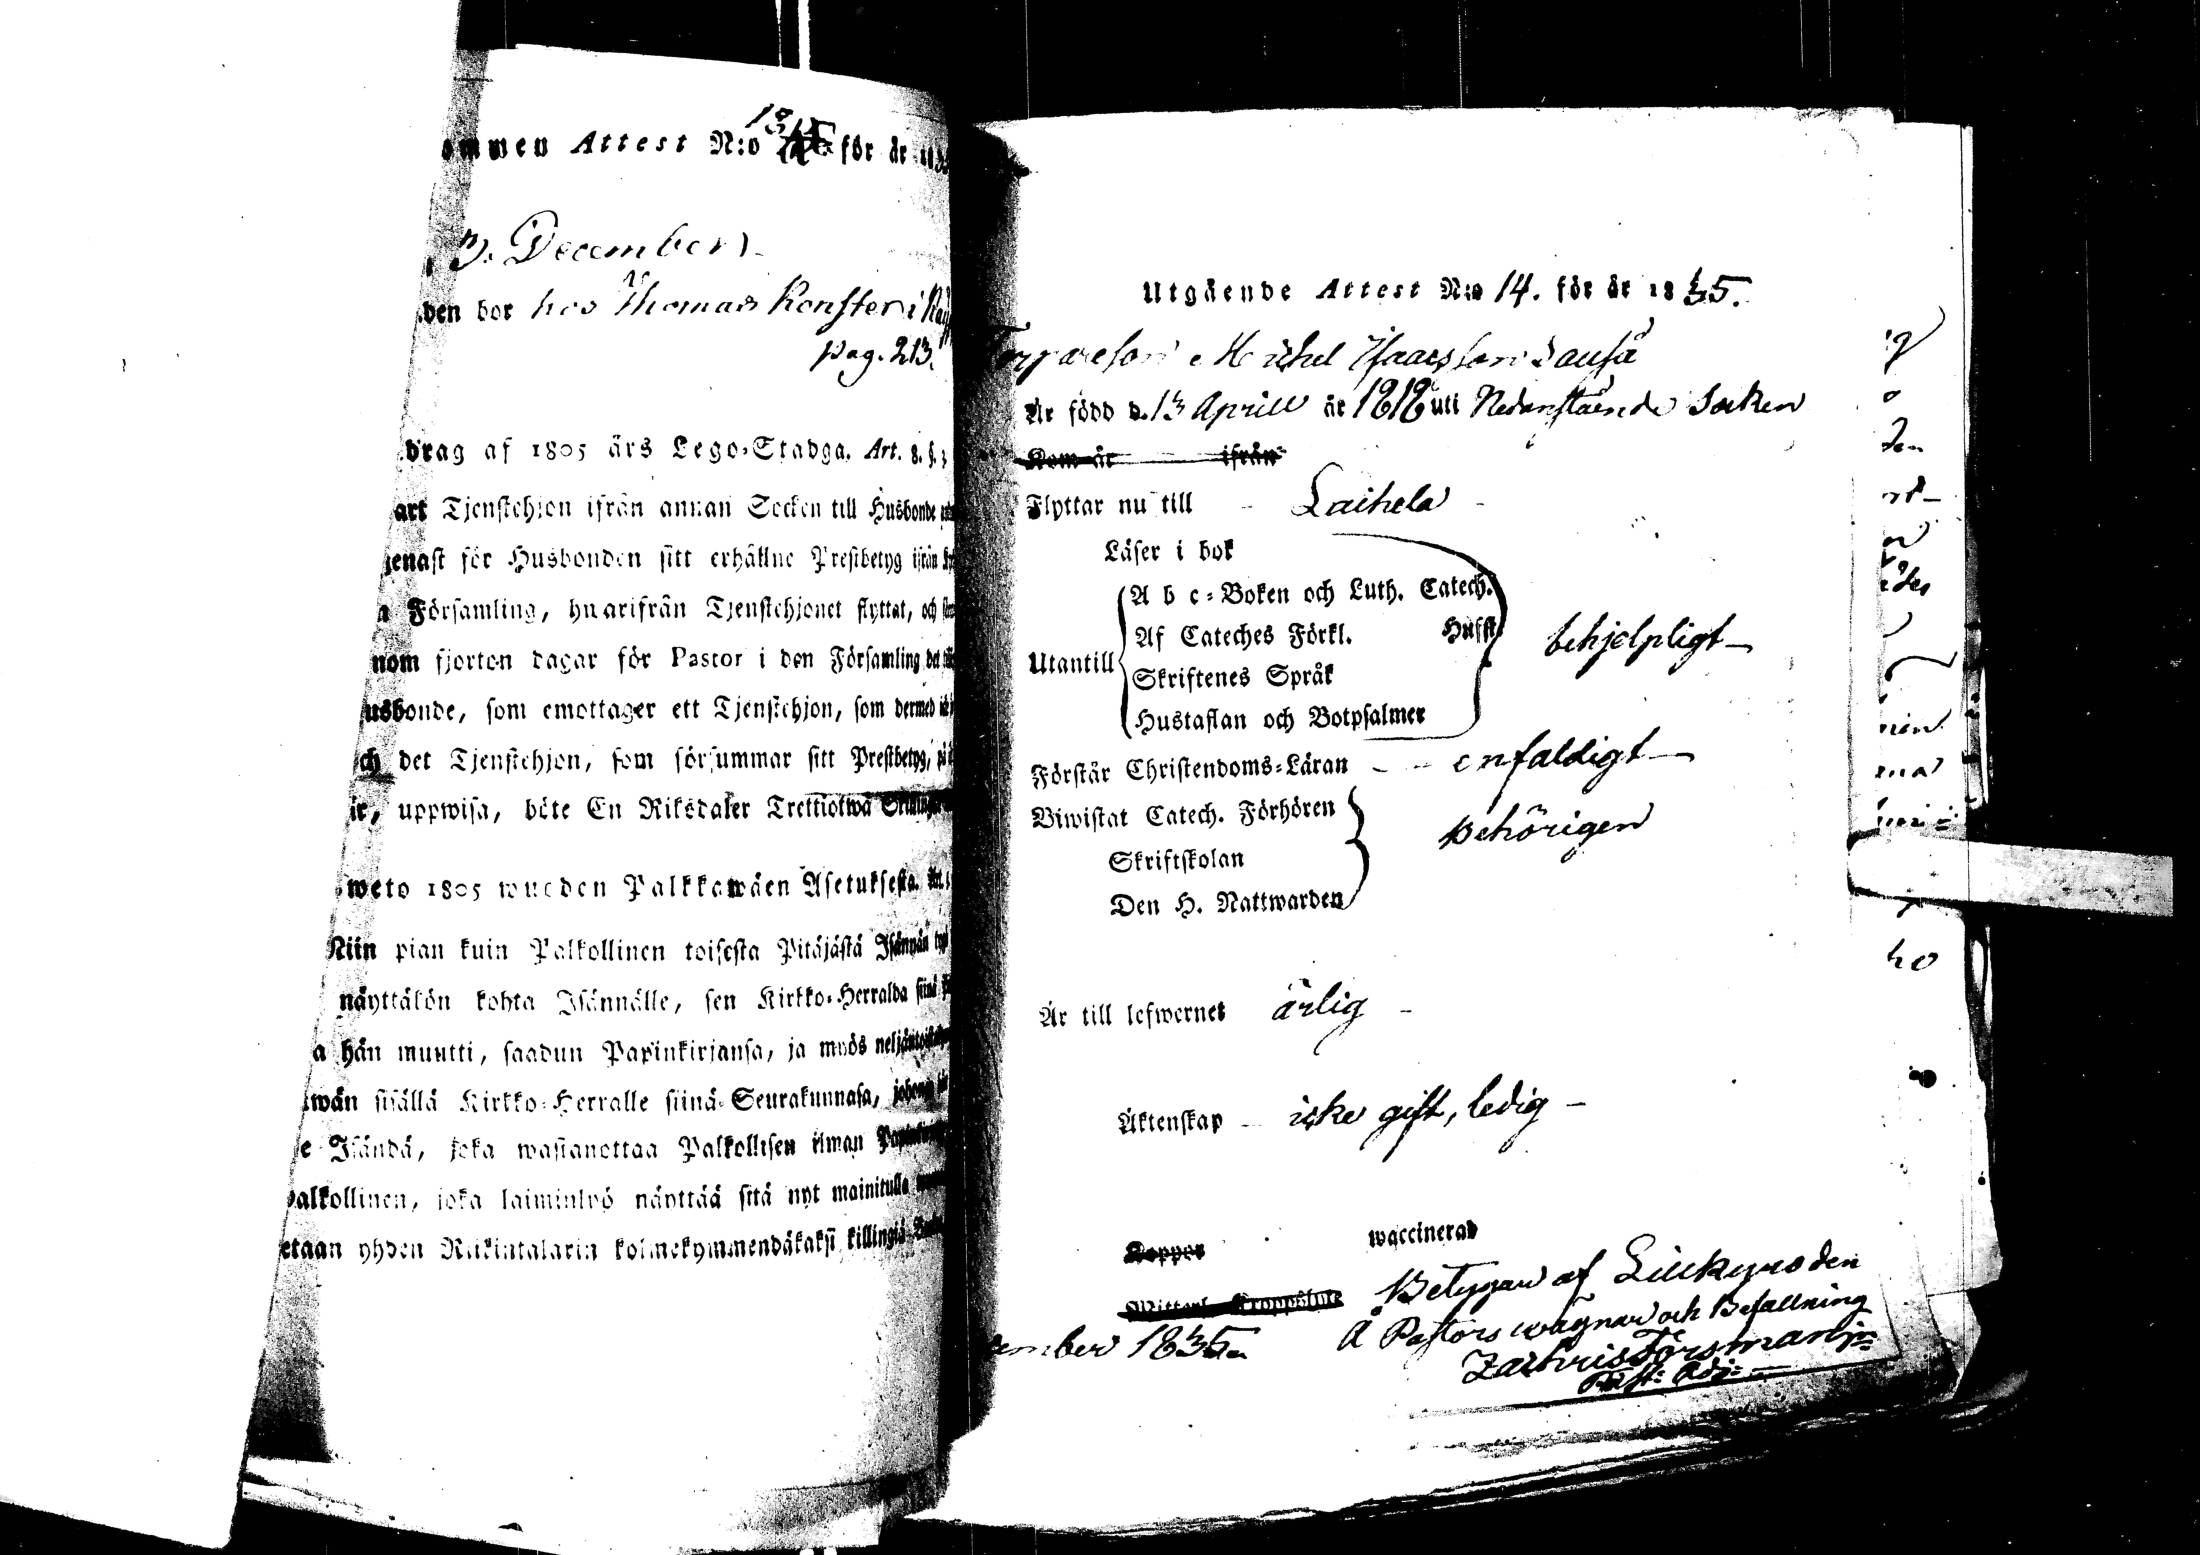 ommen Attest N:o för år 183
3. December
den bor hos Thomas Konsten i
pag. 213.
drag af 1805 års Lego-Stadga. Art. 8. §. 3
art Tjenstehjon ifrån annan Socken till Husbonde
genast för Husbonden sitt erhållne Prestbetyg ifrån
a Församling, hwarifrån Tjenstehjonet flyttat, och
nom fjorton dagar för Pastor i den Församling det
usbonde, som emottager ett Tjenstehjon, som dermed
ch det Tjenstehjon, som försummar sitt Prestbetyg,
ir, uppwisa, böte En Riksdaler Trettiotwå
weto 1805 wuoden Palkkawäen Asetuksesta.
Niin pian kuin Palkollinen toisesta Pitäjästä Isännän
näyttäkön kohta Isännälle, sen Kirkko-Herralda siinä
a hän muutti, saadun Papinkirjansa, ja myös
wän sisällä Kirkko-Herralle siinä Seurakunnasa, johonga
e Isändä, joka wastanottaa Palkollisen ilman
alkollinen, joka laiminlyö näyttää sitä nyt mainitulla
etaan yhden Riikintalarin kolmekymmendäkaksi killingiä
Utgående Attest N:o 14. för år 1835.
Torpareson Michel Isaacsson
Är född d. 13 Aprill år 1818 uti Nedanstående Socken
Kom år ifrån
Flyttar nu till Laihela
Läser i bok
A b c-Boken och Luth. Catech.
Af Cateches Förkl. Hufst.
Utantill behjelpligt
Skriftenes Språk
Hustaflan och Botpsalmer
Förstår Christendoms-Läran enfaldigt
Biwistat Catech. Förhören
behörigen
Skriftskolan
Den H. Nattwarden
Är till lefwernet ärlig
Äktenskap icke gift, ledig
Koppor waccinerad
Betygar af Storkyro den
ember 1835. Å Pastors wägnar och Befallning
Zachris Forsman
Past: Adj: